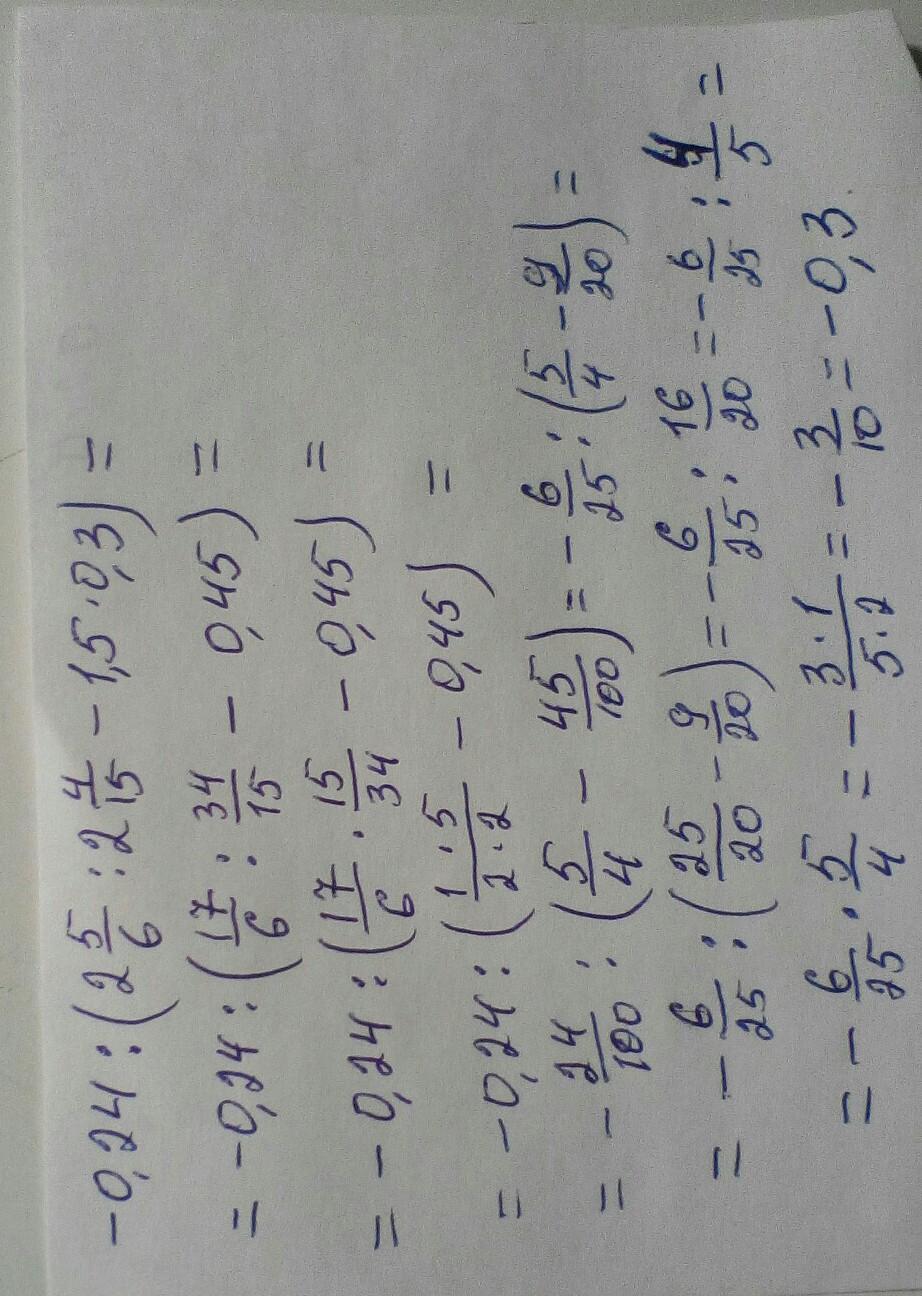 -0,24 : (2 5/6 : 2 4/15 - 1,5 · 0,3) =
= -0,24 : (17/6 : 34/15 - 0,45) =
= -0,24 : (17/6 · 15/34 - 0,45) =
= -0,24 : (1·5/2·2 - 0,45) =
= -24/100 : (5/4 - 45/100) = -6/25 : (5/4 - 9/20) =
= -6/25 : (25/20 - 9/20) = -6/25 : 16/20 = -6/25 : 4/5 =
= -6/25 · 5/4 = -3·1/5·2 = -3/10 = -0,3.